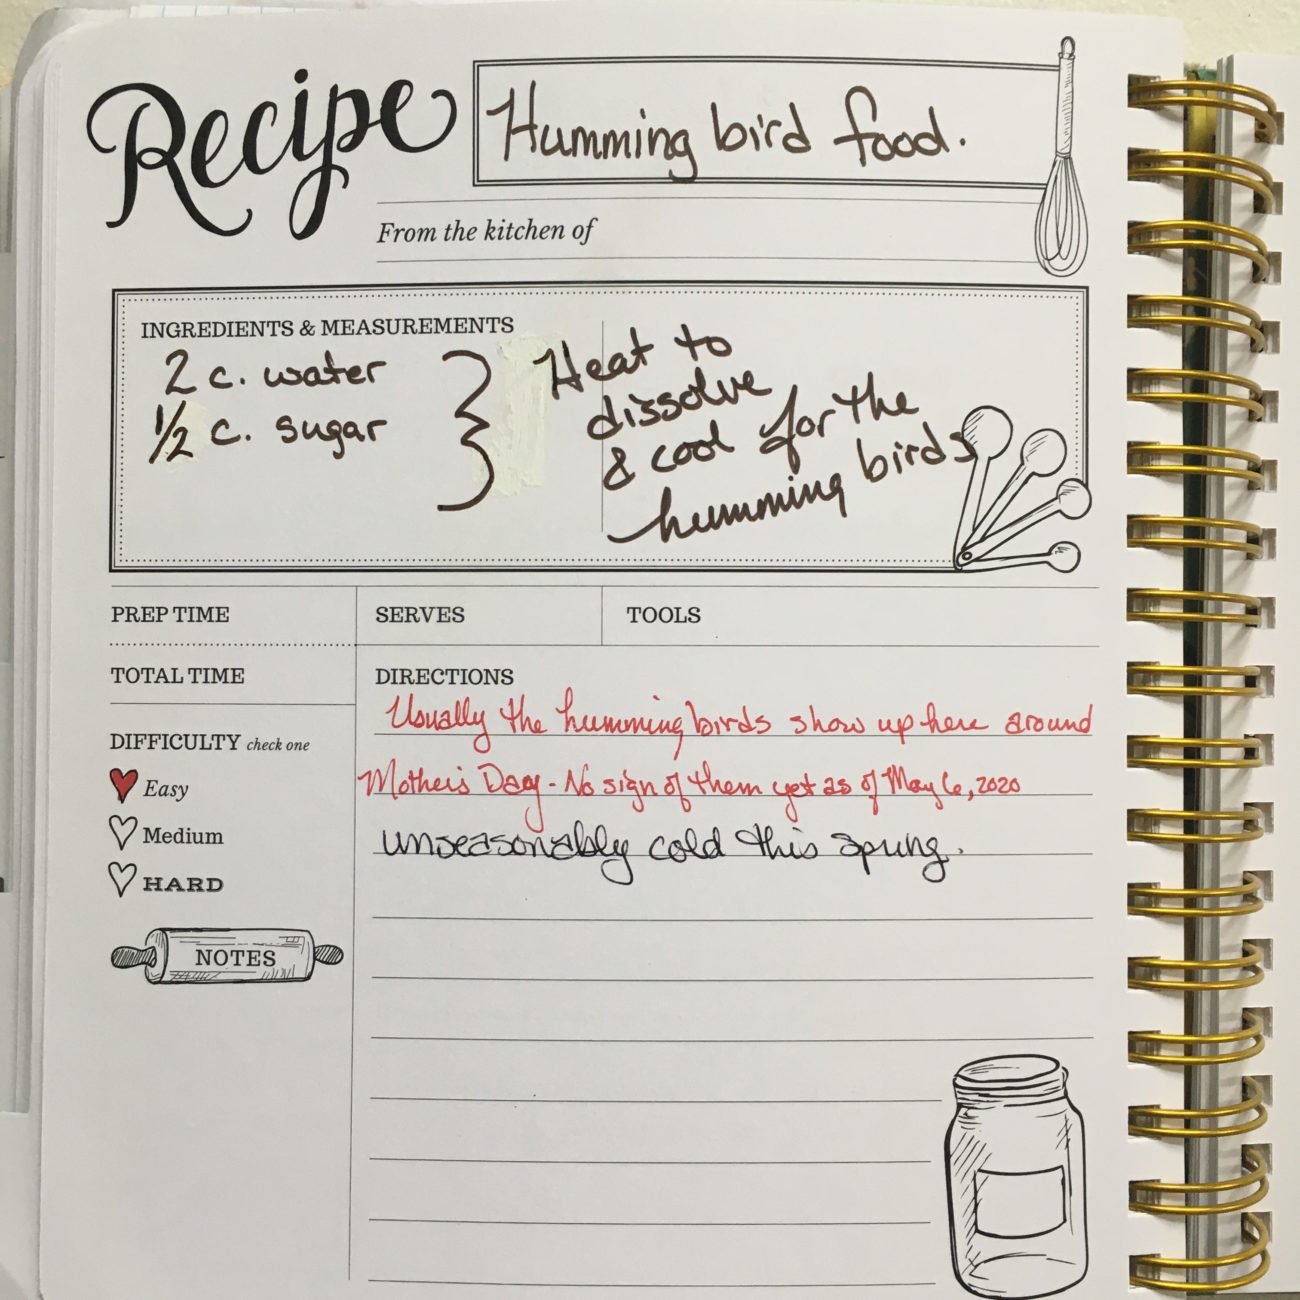 Recipe
Humming bird food.
From the kitchen of
INGREDIENTS & MEASUREMENTS
2 c. water
1/2 c. sugar
Heat to
dissolve
& cool for the
humming birds
PREP TIME
SERVES
TOOLS
TOTAL TIME
DIFFICULTY check one
Easy
Medium
HARD
NOTES
DIRECTIONS
Usually the humming birds show up here around
Mother's Day - No sign of them yet as of May 6, 2020
unseasonably cold this spring.